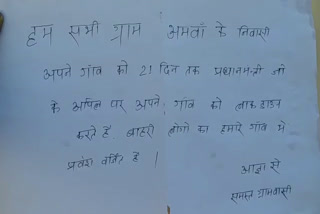 हम सभी ग्राम अमवाँ के निवासी
अपने गांव को 21 दिन तक प्रधानमन्त्री जी
के अपिल पर अपने गांव को लाक डाउन
करते हैं. बाहरी लोगों का हमारे गांव मे
प्रवेश वर्जित है।
आज्ञा से
समस्त ग्रामवासी